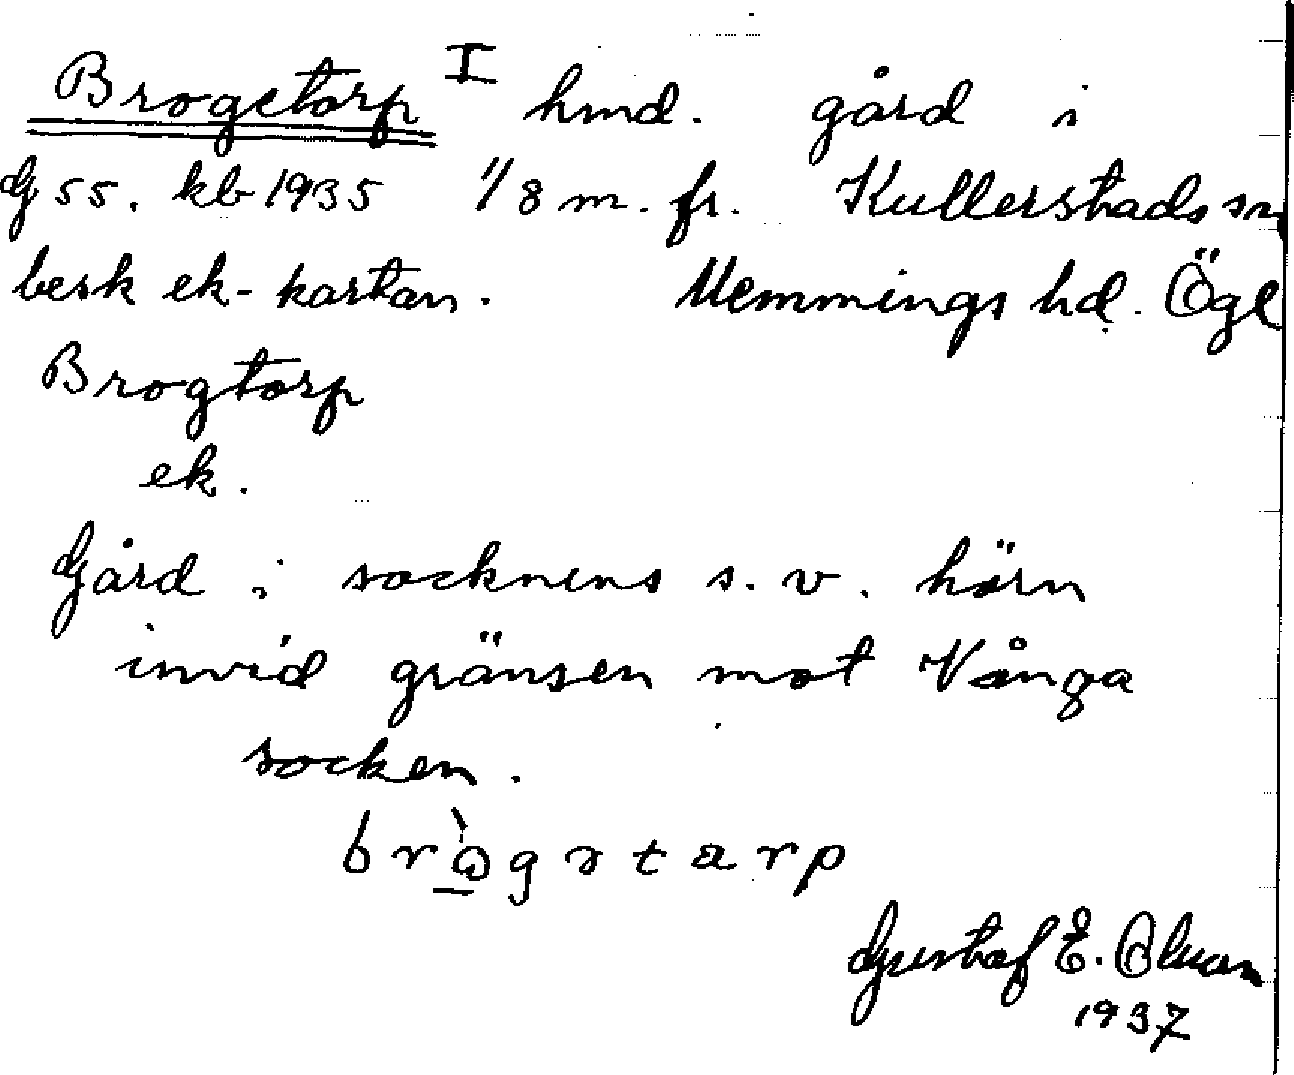 Brogetorp I hmd. gård i
G 55. kb 1935 1/8 m. fr. Kullerstads sn
besk ek-kartan. Memmings hd. Ögl
Brogtorp
ek.
Gård i socknens s. v. hörn
invid gränsen mot Vånga
socken.
Gustaf E. Olson
1937